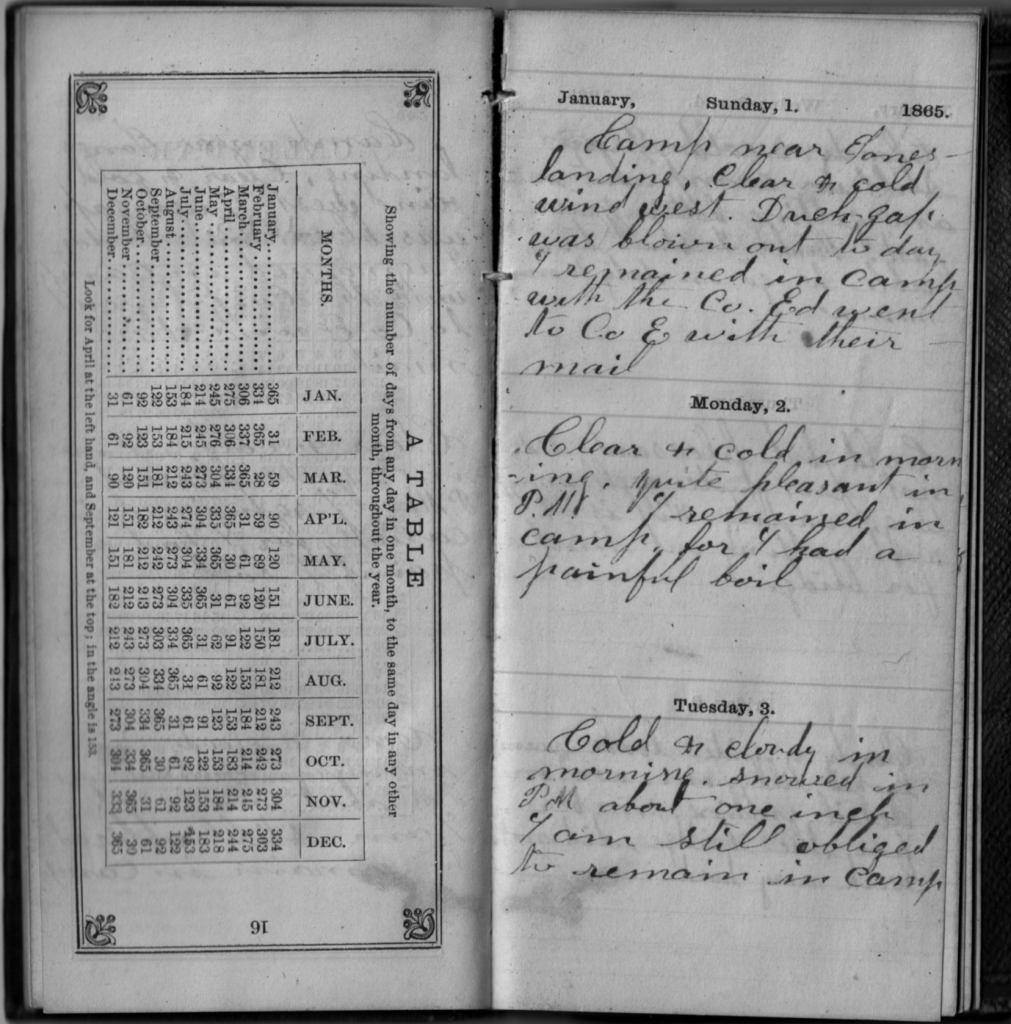 A TABLE
Showing the number of days from any day in one month, to the same day in any other
month, throughout the year.
MONTHS. JAN. FEB. MAR. AP'L. MAY. JUNE. JULY. AUG. SEPT. OCT. NOV. DEC.
January 365 31 59 90 120 151 181 212 243 273 304 334
February 334 365 28 59 89 120 150 181 212 242 273 303
March 306 337 365 31 61 92 122 153 184 214 245 275
April 275 306 334 365 30 61 91 122 153 183 214 244
May 245 276 304 335 365 31 62 92 123 153 184 218
June 214 245 273 304 334 365 31 61 91 122 153 183
July 184 215 243 274 304 335 365 31 61 92 123 153
August 153 184 212 243 273 304 334 365 31 61 92 122
September 122 153 181 212 242 273 303 334 365 30 61 92
October 92 123 151 182 212 243 273 304 334 365 31 61
November 61 92 120 151 181 212 243 273 304 334 365 30
December 31 61 90 121 151 182 212 243 273 304 333 365
Look for April at the left hand, and September at the top; in the angle is 153.
16
January, Sunday, 1. 1865.
Camp near Jones
landing, Clear & cold
wind west. Duch gap
was blown out to day
I remained in camp
with the Co. Ed went
to Co E with their
mail
Monday, 2.
Clear & cold in morn
-ing. quite pleasant in
P.M. I remained in
camp, for I had a
painful boil
Tuesday, 3.
Cold & cloudy in
morning. snowed in
PM about one inch
I am still obliged
to remain in camp